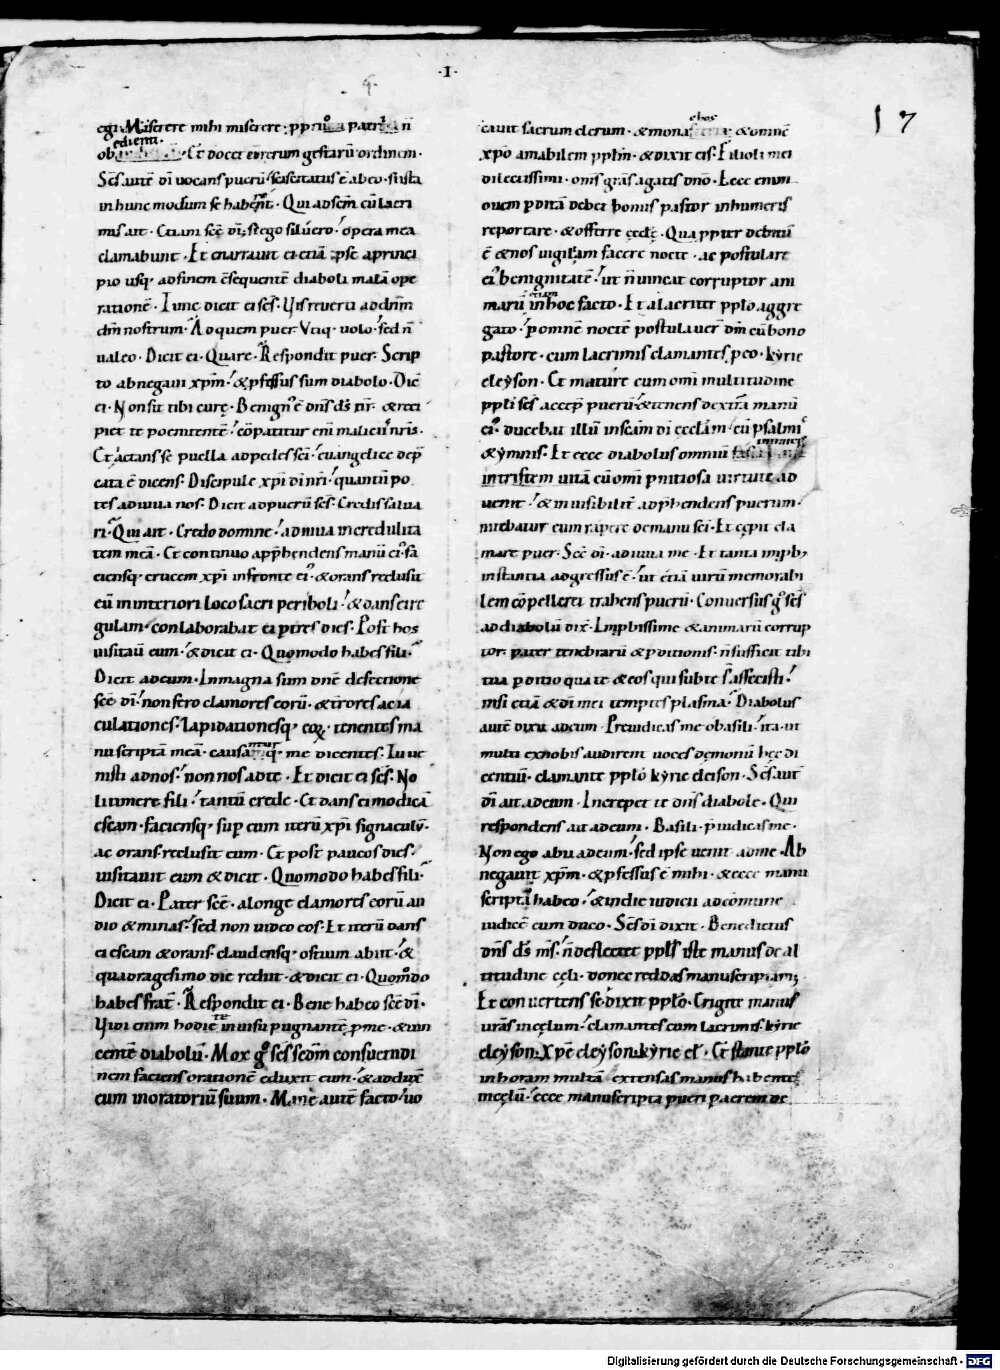 ·I·
17
egi. Miserere mihi miserere; ꝓpr patris n̄
edienti.
ob. Et docei eūrerum gestarū ordinem.
Scs̄ autē dī vocans puerū sciscitatus ē abeo. si ista
in hunc modum se habent. Qui ad scm̄ cū lacri
mis ait. Etiam scē dī; si ego siluero. opera mea
clamabunt. Et enarravit ei etiā ipse a princi
pio usq; ad finem ēsequentē diaboli malā ope
rationē. Tunc dicit ei scs̄. Vis reverti ad dn̄m
dm̄ nostrum. Ad quem puer. Utiq; volo. sed n̄
valeo. Dicit ei. Quare. Respondit puer. Scrip
to abnegavi xp̄m. & ꝓfessus sum diabolo. Dic̄
ei. Non sit tibi curę. Benign' ē dn̄s ds̄ nr̄. & reci
piet te poenitentē. cōpatitur eni malicii n̄ris.
Et iactans se puella ad pedes scī. euangelice dep̄
cata ē dicens. Discipule xp̄i dī nrī. quantū po
tes adiuva nos. Dicit ad puerū scs̄. Credis salva
ri. Qui ait. Credo domne. adiuva incredulita
tem meā. Et continuo app̄hendens manū ei' fa
ciensq; crucem xp̄i in fronte ei'. & orans reclusit
eū in interiori loco sacri periboli. & dans ei re
gulam. conlaborabat ei ꝑ tres dies. Post hos
visitavit eum. & dicit ei. Quomodo habes fili.
Dicit ad eum. In magna sum dn̄e defectione
scē dī. non fero clamores eorū. & trores ac ia
culationes. lapidationesq; eoꝝ. tenentes ma
nuscriptā meā. causantur q; me dicentes. Tu ve
nisti ad nos. non nos ad te. Et dicit ei scs̄. No
li timere fili. tantū crede. Et dans ei modicā
escam. faciensq; sup eum iterū xp̄i signaculū.
ac orans reclusit eum. Et post paucos dies.
visitavit eum & dicit. Quomodo habes fili.
Dicit ei. Pater scē. a longe clamores eorū au
dio & minas. sed non video eos. Et iterū dans
ei escam & orans. claudensq; ostium abiit. &
quadragesimo die rediit. & dicit ei. Quomodo
habes frat. Respondit ei. Bene habeo scē dī.
Vidi enim hodie te in visu pugnantē ꝑ me. & vin
centē diabolū. Mox g̊ scs̄ sedm̄ consuetudi
nem faciens orationē eduxit eum. & addux̄
eum in oratoriū suum. Mane autē facto. vo
cavit sacrum clerum. & monachos & omnē
xp̄o amabilem pplm̄. & dixit eis. Filioli mei
dilectissimi. om̄s gr̄as agatis dn̄o. Ecce enim
ovem ꝑditā debet bonus pastor in humeris
reportare. & offerre ęcclę. Qua ꝓpter debitū
ē & nos vigiliam facere nocte. ac postulare
ei' benignitatē. ut n̄ vincat corruptor ani
marū etiam in hoc facto. Et alacriter pplo aggre
gato. ꝑ omnē noctē postulaver' dm̄ cū bono
pastore. cum lacrimis clamantes ꝑ eo. kyrie
eleyson. Et mature cum omi multitudine
ppli scs̄ accep̄ puerū. & tenens dextrā manū
ei'. ducebat illū in scām dī ecclām. cū psalmis
& ymnis. Et ecce diabolus omniū
intristem vitā cū omi ꝑnitiosa virtute ad
venit. & invisibilit' adp̄hendens puerum.
nitebatur eum rapere de manu scī. Et cępit cla
mare puer. Scē dī. adiuva me. Et tanta impb;
instantia adgressus ē. ut etiā virū memorabi
lem cōpelleret trahens puerū. Conversus g̊ scs̄
ad diabolū dix̄. Impbissime & animarū corrup
tor. pater tenebrarū & ꝑditionis. n̄ sufficit tibi
tua ꝑditio qua te & eos qui sub te s̄ affecisti.
nisi etiā & dī mei temptes plasma. Diabolus
autē dixit ad eum. Preiudicas me o basili. ita ut
multi ex nobis audirent voces demonū hęc di
centiū. clamante pplo kyrie eleison. Scs̄ aut̄
dī ait ad eum. Increpet te dn̄s diabole. Qui
respondens ait ad eum. Basili. p̄iudicas me.
Non ego abii ad eum. sed ipse venit ad me. Ab
negavit xp̄m. & ꝓfessus ē mihi. & ecce manu
scriptā habeo. & in die iudicii ad comune
iudicē eum duco. Scs̄ dī dixit. Benedictus
dn̄s ds̄ ms̄. n̄ deflectet ppls iste manus de al
titudine cęli. donec reddas manuscriptam;
Et convertens se dixit pplo. Erigite manus
vr̄as in cęlum. clamantes cum lacrimis. kyrie
eleyson. Xp̄e eleyson. kyrie el̄. Et stante pplo
in horam multā. extensas manus habentes
in cęlū. ecce manuscripta pueri ꝑ aerem de
Digitalisierung gefördert durch die Deutsche Forschungsgemeinschaft - DFG